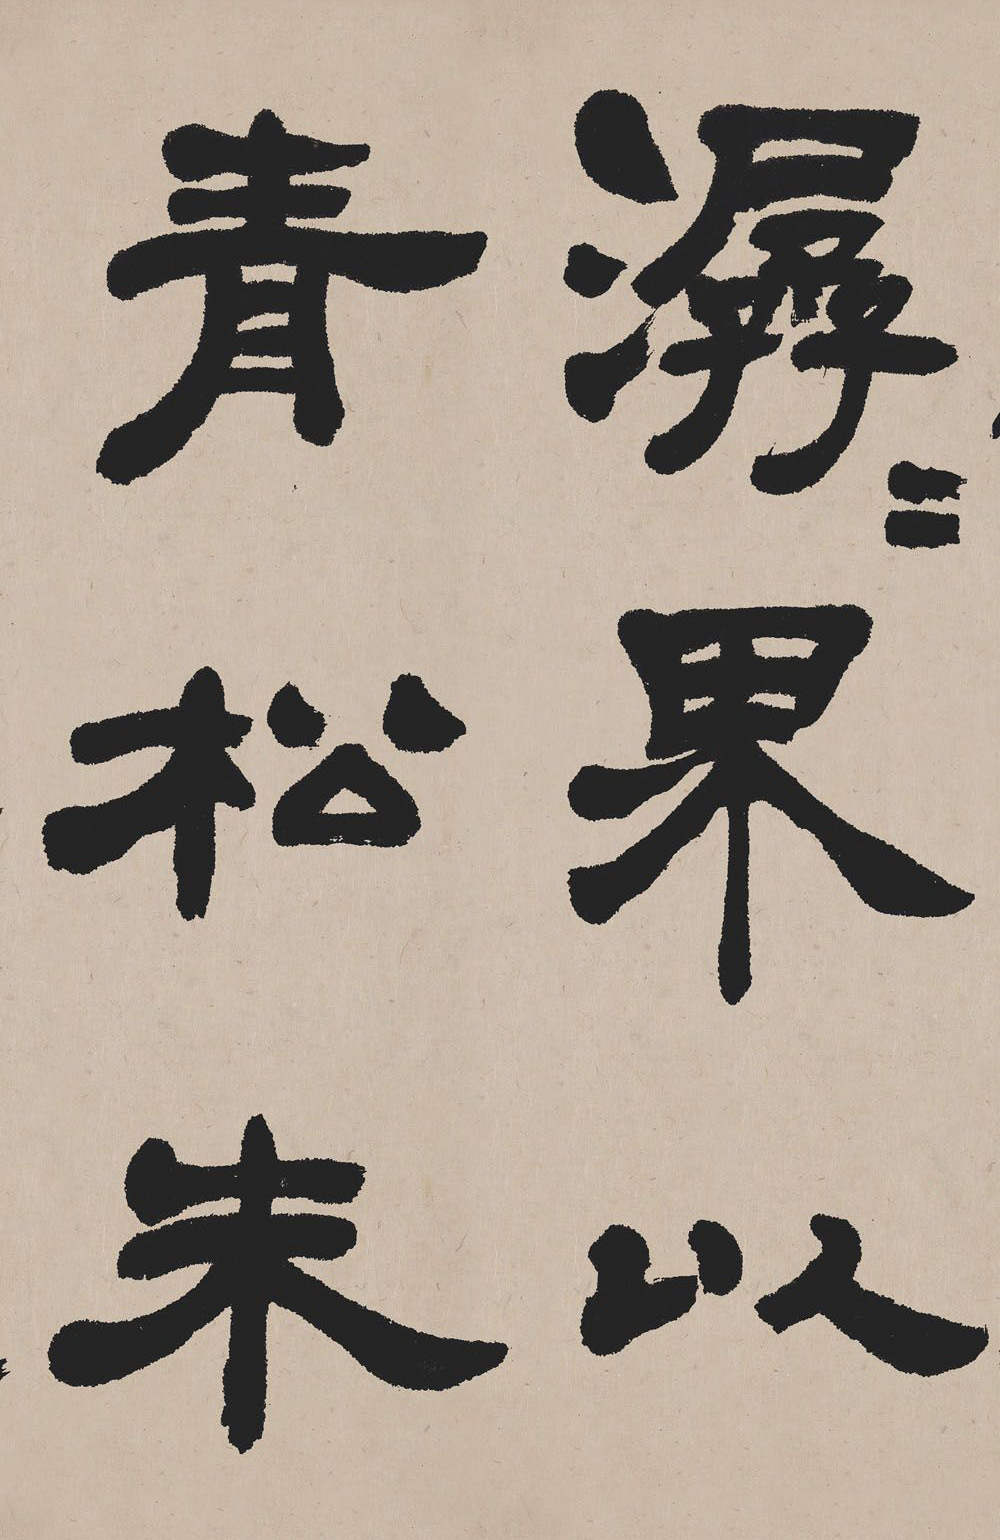 潺〻果以
青松朱